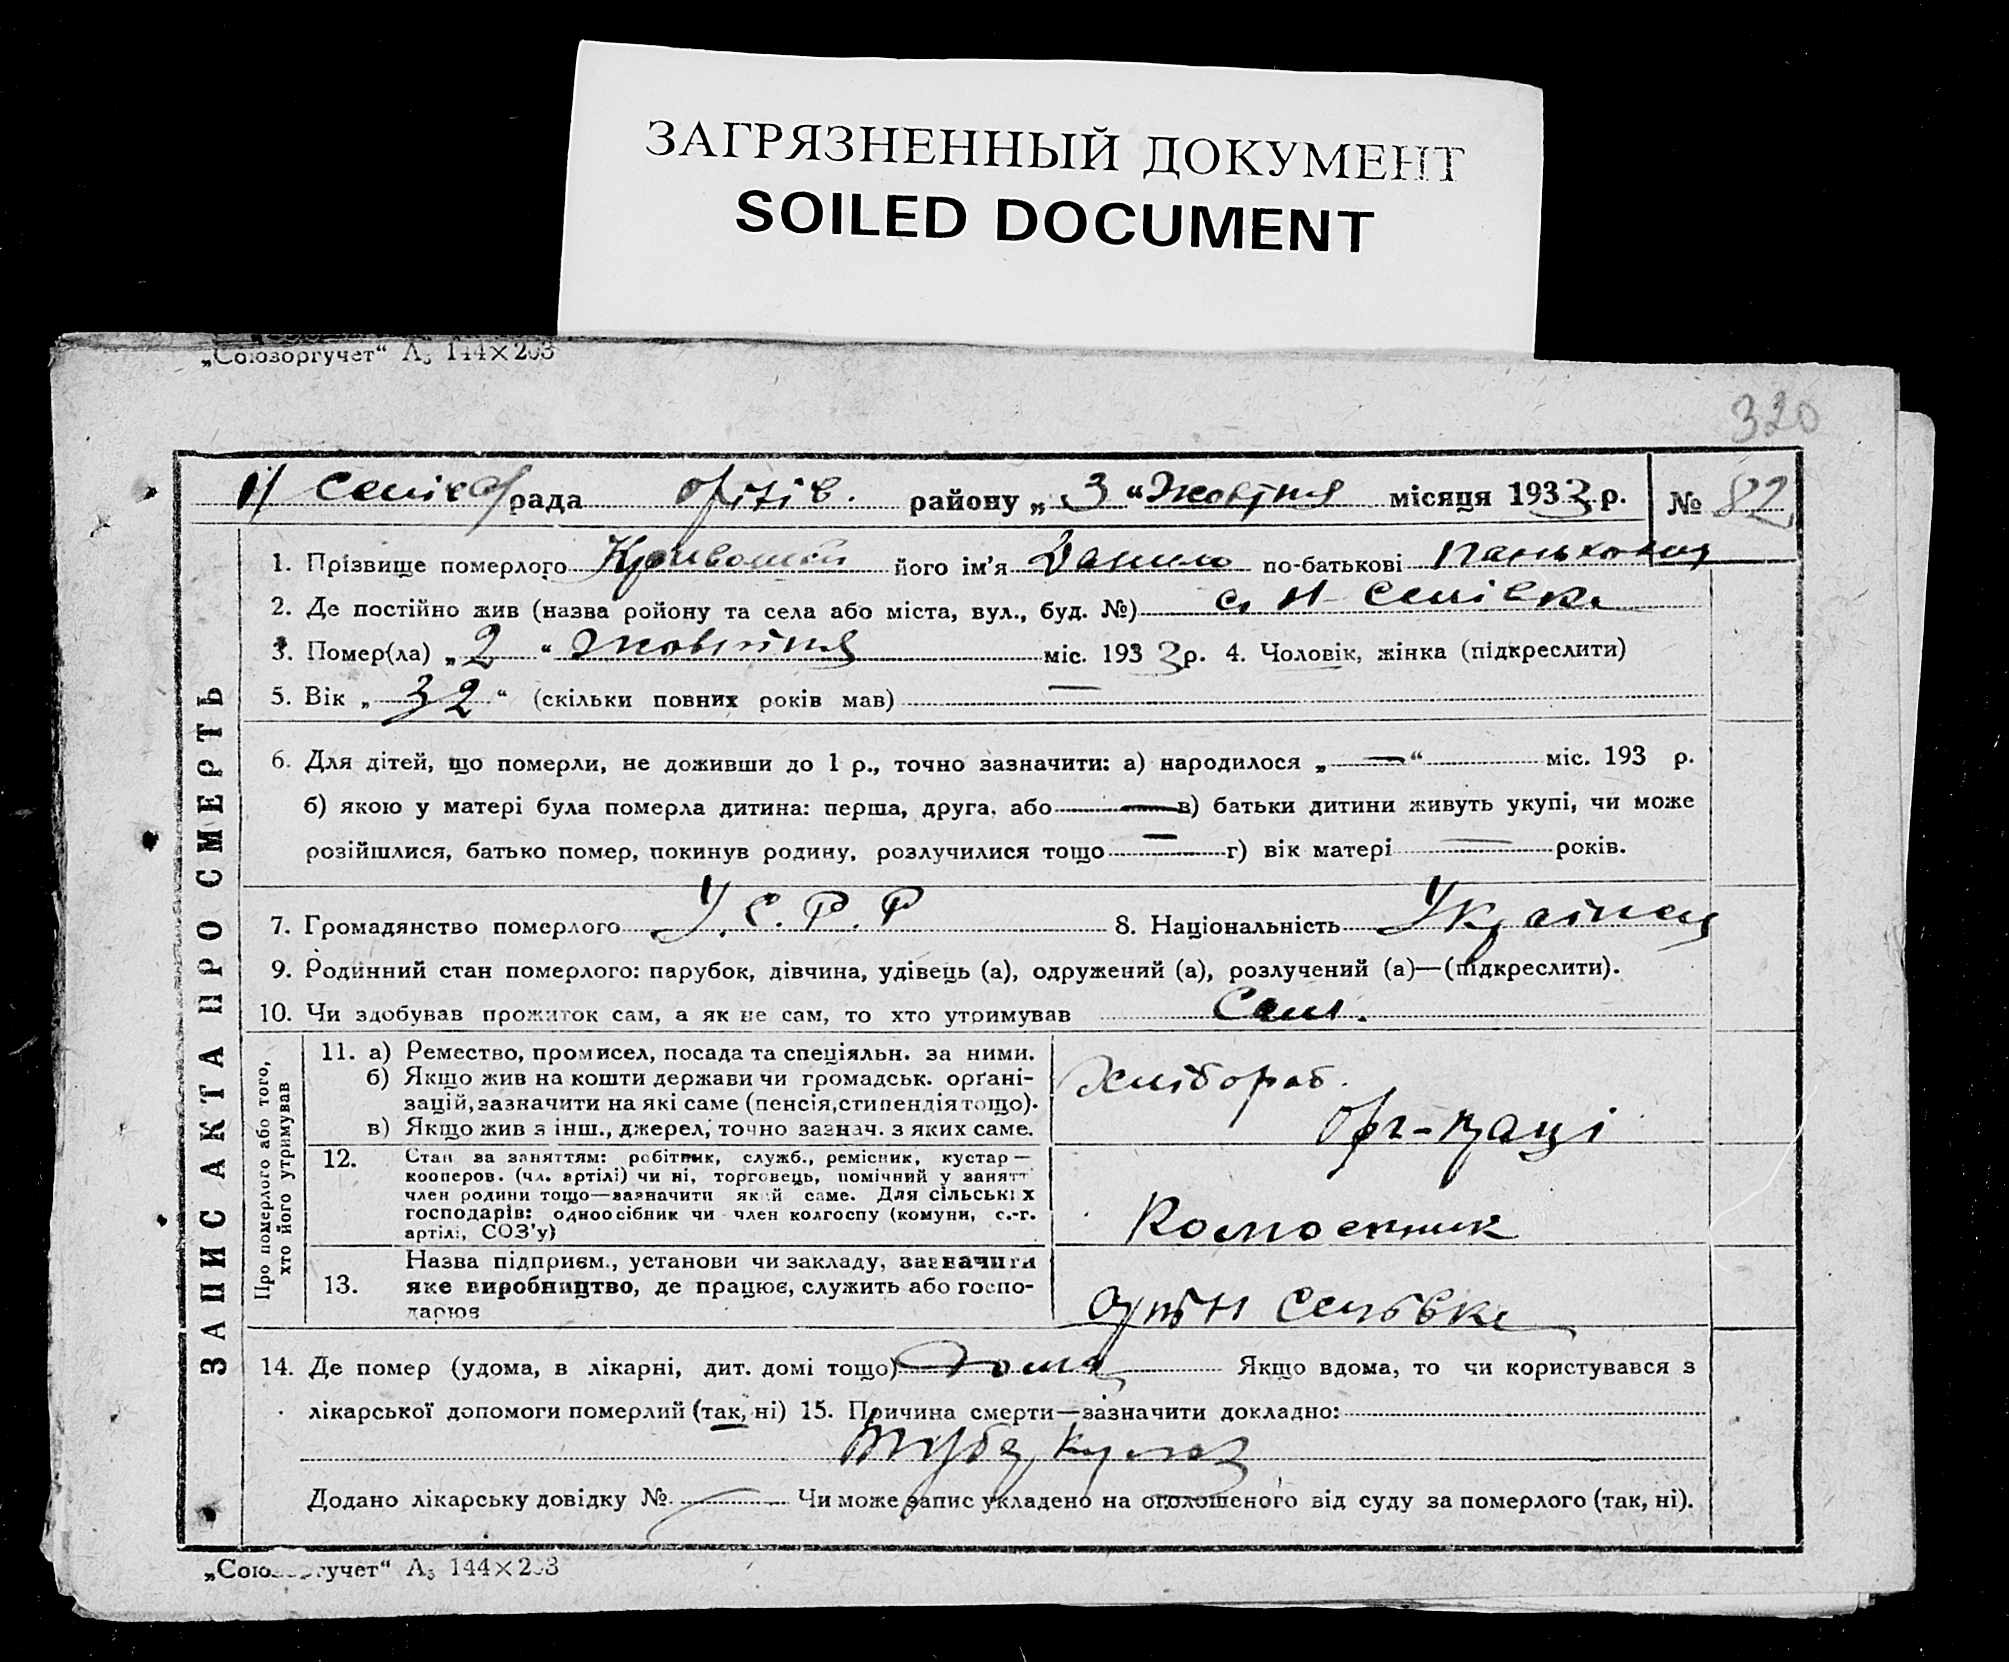 ЗАГРЯЗНЕННЫЙ ДОКУМЕНТ
SOILED DOCUMENT
„Союзоргучет“ А₅ 144×203
320
рада района „3“ Жовтня місяця 1933 р. № 82
1. Прізвище померлого його ім'я Данило по-батькові Панькович
2. Де постійно жив (назва ройону та села або міста, вул., буд. №) с. Н-Семівка
3. Помер(ла) „2“ Жовтня міс. 1933 р. 4. Чоловік, жінка (підкреслити)
5. Вік „32“ (скільки повних років мав) —
6. Для дітей, що померли, не доживши до 1 р., точно зазначити: а) народилося „—“ міс. 193 р.
б) якою у матері була померла дитина: перша, друга, або — в) батьки дитини живуть укупі, чи може
розійшлися, батько помер, покинув родину, розлучилися тощо — г) вік матері — років.
7. Громадянство померлого У.С.Р.Р 8. Національність Українец
9. Родинний стан померлого: парубок, дівчина, удівець (а), одружений (а), розлучений (а)—(підкреслити).
10. Чи здобував прожиток сам, а як не сам, то хто утримував Сам.
ЗАПИС АКТА ПРО СМЕРТЬ
Про померлого або того,
хто його утримував
11. а) Ремество, промисел, посада та спеціяльн. за ними.
б) Якщо жив на кошти держави чи громадськ. орґані-
зацій, зазначити на які саме (пенсія, стипендія тощо).
в) Якщо жив з інш., джерел, точно зазнач. з яких саме.
Хлібороб.
Орг-праці
12. Стан за заняттям: робітник, служб., ремісник, кустар—
кооперов. (чл. артілі) чи ні, торговець, помічний у занятт
член родини тощо—зазначити який саме. Для сільських
господарів: одноосібник чи член колгоспу (комуни, с.-г.
артілі, СОЗ'у)
Колгоспник
13. Назва підприєм., установи чи закладу, зазначити
яке виробництво, де працює, служить або госпо-
дарює
14. Де помер (удома, в лікарні, дит. домі тощо) Дома Якщо вдома, то чи користувався з
лікарської допомоги померлий (так, ні) 15. Причина смерти—зазначити докладно:
Туберкульоз
Додано лікарську довідку № Чи може запис укладено на оголошеного від суду за померлого (так, ні).
„Союзоргучет“ А₅ 144×203